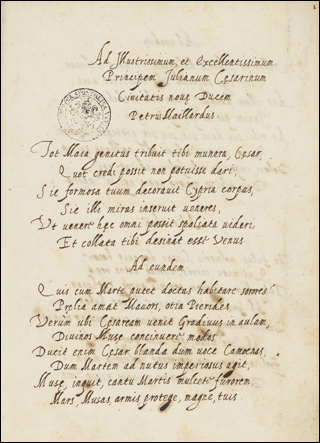 Ad Illustrissimum, et Excellentissimum
Principem Julianum Cesarinum
Civitatis noue Ducem
Petrus Haillardus.
Tot Maia genitus tribuit tibi munera, Cesar,
Quot credi possit non potuisse dari,
Sic formosa tuum decorauit Cypria corpus,
Sic illi miras inseruit ueneres,
Vt uenere hęc omni possit spoliata uideri,
Et collata tibi desinat esse Venus.
Ad eundem
Quis cum Marte putet doctas habitare sorores?
Prelia amat Mauors, otia Pierides.
Verum ubi Cesaream uenit Gradiuus in aulam,
Diuinos Muse concinuere modos.
Ducit enim Cesar blanda dum uoce Camoenas,
Dum Martem ad nutus imperiosus agit,
Muse, inquit, cantu Martis mulcete furorem,
Mars, Musas, armis protege, magne, tuis.